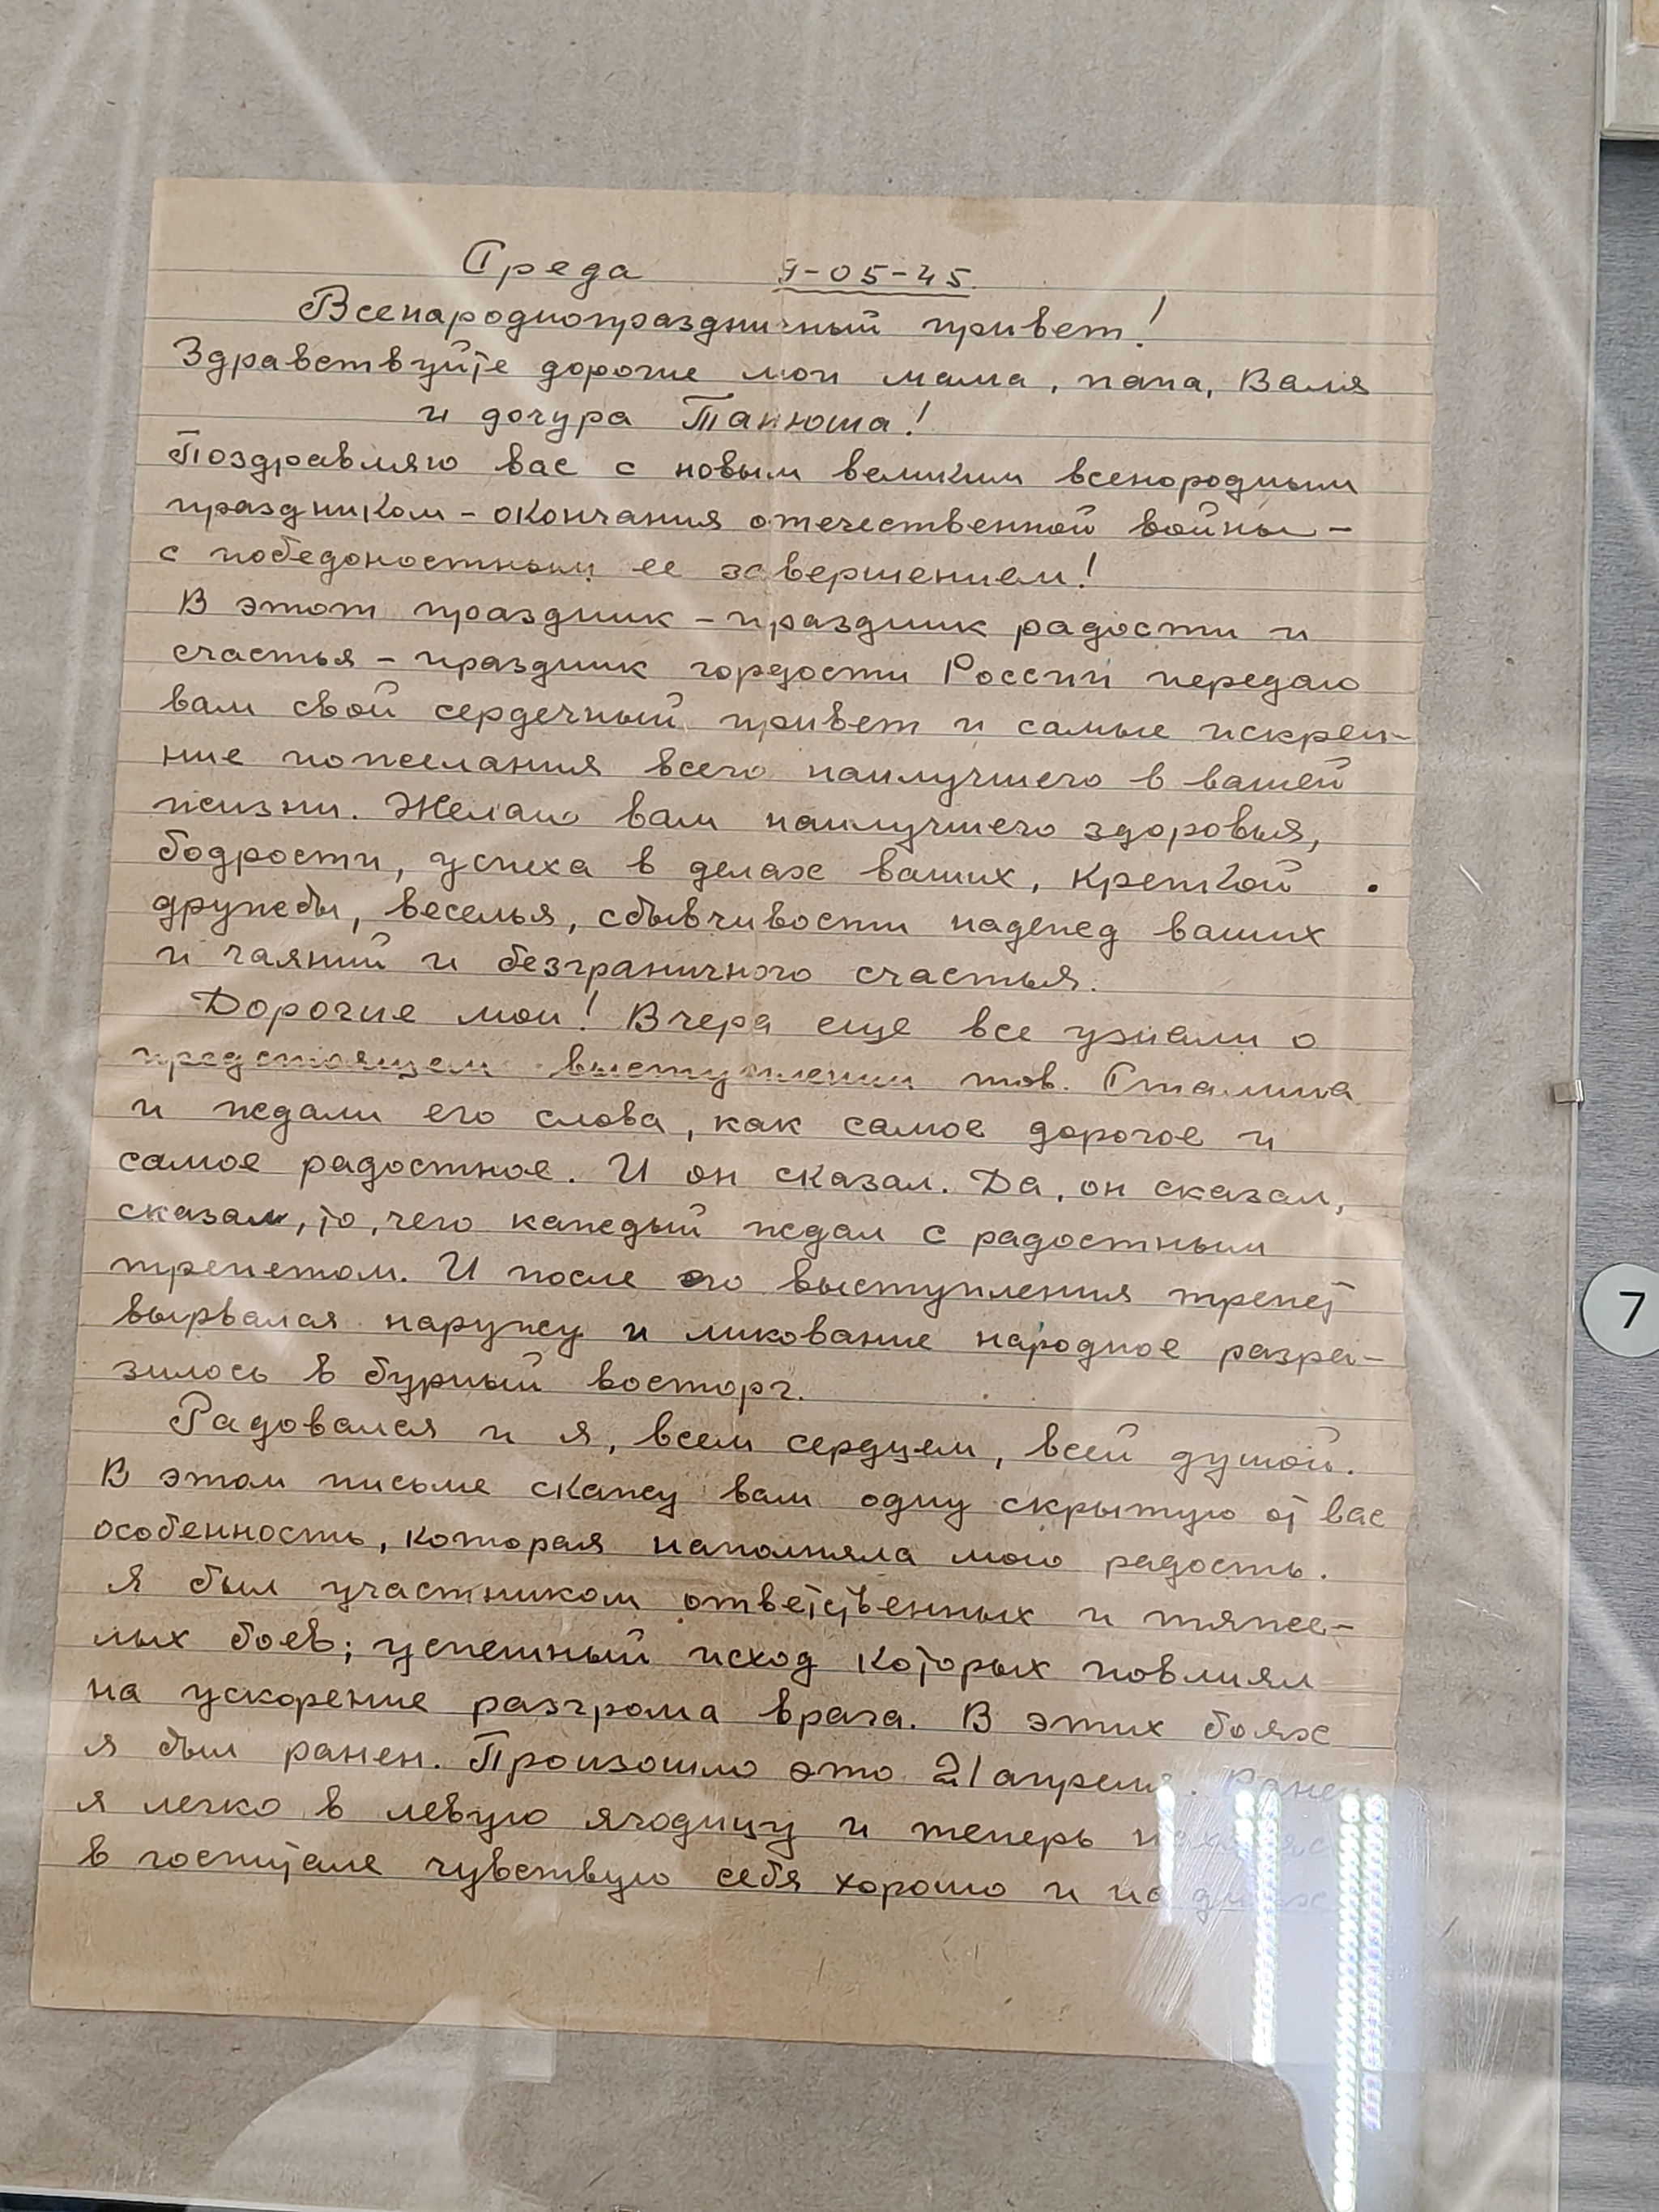 Среда 9-05-45.
Всенароднопраздничный привет!
Здравствуйте дорогие мои мама, папа, Валя
и дочура Танюша!
Поздравляю вас с новым великим всенородным
праздником - окончания отечественной войны -
с победоностным ее завершением!
В этот праздник - праздник радости и
счастья - праздник гордости России передаю
вам свой сердечный привет и самые искрен-
ние пожелания всего наилучшего в вашей
жизни. Желаю вам наилучшего здоровья,
бодрости, успеха в делах ваших, крепкой
дружбы, веселья, сбывчивости надежд ваших
и чаяний и безграничного счастья.
Дорогие мои! Вчера еще все узнали о
предстоящем выступлении тов. Сталина
и ждали его слова, как самое дорогое и
самое радостное. И он сказал. Да, он сказал,
сказал, то, чего каждый ждал с радостным
трепетом. И после его выступления трепет
вырвался наружу и ликование народное разра-
зилось в бурный восторг.
Радовался и я, всем сердцем, всей душой.
В этом письме скажу вам одну скрытую от вас
особенность, которая наполняла мою радость.
Я был участником ответственных и тяже-
лых боев; успешный исход которых повлиял
на ускорение разгрома врага. В этих боях
я был ранен. Произошло это 21 апреля. Ранен
я легко в левую ягодицу и теперь
в госпитале чувствую себя хорошо и на днях
7